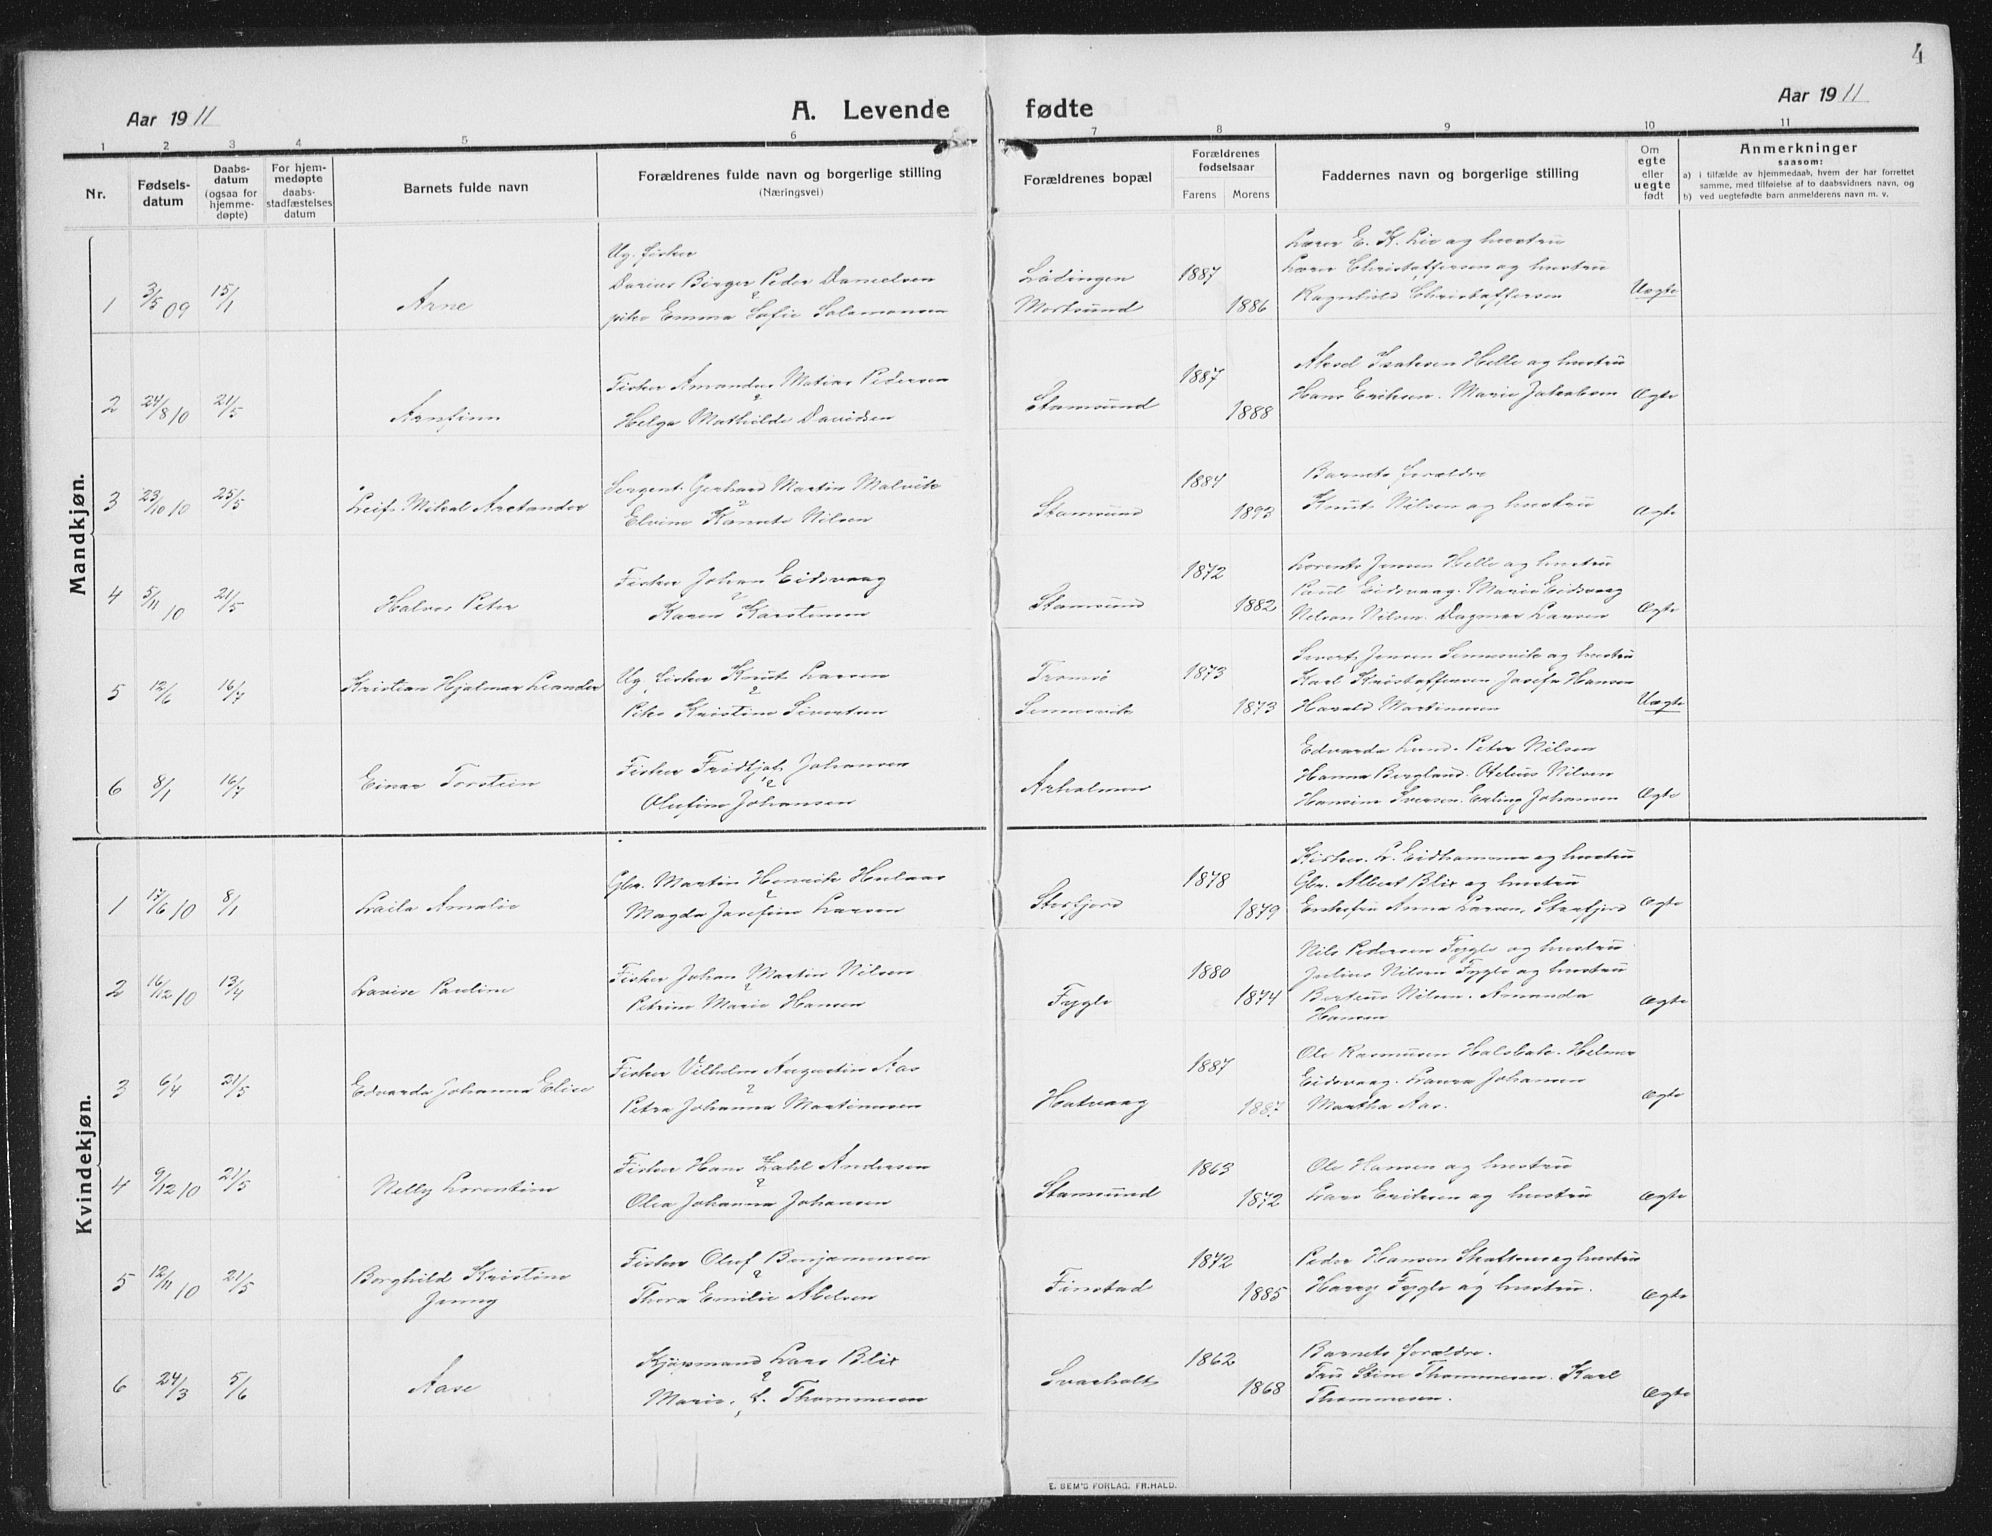 4
Aar 1911
A. Levende fødte
Aar 1911
1 2 3 4 5 6 7 8 9 10 11
Nr.
Fødsels-
datum
Daabs-
datum
(ogsaa for
hjemme-
døpte)
For hjem-
medøpte
daabs-
stadfæstelses
datum
Barnets fulde navn
Forældrenes fulde navn og borgerlige stilling
(Næringsvei)
Forældrenes bopæl
Forældrenes
fødselsaar
Farens Morens
Faddernes navn og borgerlige stilling
Om
egte
eller
uegte
født
Anmerkninger
saasom:
a) i tilfælde av hjemmedaab, hvem der har forrettet
samme, med tilføielse af to daabsvidners navn, og
b) ved uegtefødte barn anmelderens navn m. v.
Mandkjøn.
1 3/5 09 15/1 Arne
Ug. fisker
Darius Birger Peder Danielsen
pike Emma Sofie Salamonsen
Lødingen
Mortsund
1887
1886
Lærer E. K. Lie og hustru
Lærer Christoffersen og hustru
Ragnhild Christoffersen
Uegte
2 24/8 10 21/5 Arnfinn
Fisker Amandus Matias Pedersen
&
Helga Mathilde Davidsen
Stamsund
1887
1888
Aksel Isaksen Helle og hustru
Hans Eriksen. Marie Jakobsen
Ægte
3 23/10 10 25/5 Leif Mikal Aretander
Sergent Gerhard Martin Malvik
&
Elvine Nilsen
Stamsund
1884
1893
Barnets forældre
Knut Nilsen og hustru
Ægte
4 5/11 10 21/5 Halvor Peter
Fisker Johan Eidsvaag
&
Karen Karstensen
Stamsund
1872
1882
Lorents Jensen Helle og hustru
Paul Eidsvaag. Marie Eidsvaag
Nilsen. Dagmar Larsen
Ægte
5 12/6 16/7 Kristian Hjalmar Leander
Ug. fisker Knut Larsen
&
Pike Kristine Sivertsen
Tromsø
Sennesvik
1873
1873
Sivert Jensen Sennesvik og hustru
Karl Kristoffersen Josefa Hansen
Harald Martinussen
Uægte
6 8/1 16/7 Einar Torstein
Fisker Fridtjof Johansen
&
Olufine Johansen
Axholmen
Edvarda Lund. Peter Nilsen
Hanna Bergland. Otelius Nilsen
Hansine Iversen. Erling Johansen
Ægte
Kvindekjøn.
1 17/6 10 8/1 Laila Amalie
Gbr. Martin Henrik
&
Magda Josefine Larsen
Storfjord
1878
1879
L. Eidhammer og hustru
Gbr. Albert Blix og hustru
Enkefru Anna Larsen, Storfjord
Ægte
2 16/12 10 13/4 Lovise Pauline
Fisker Johan Martin Nilsen
&
Petrine Marie Hansen
Fygle
1880
1874
Nils Pedersen Fygle og hustru
Julius Nilsen Fygle og hustru
Berteus Nilsen. Amanda
Hansen
Ægte
3 6/4 21/5 Edvarda Johanna Elise
Fisker Vilhelm Augustin Aas
&
Petra Johanna Martinussen
Hortvaag
1887
1887
Ole Rasmusen Halsbak. Helmer
Eidsvaag. Laura Johansen
Martha Aas.
Ægte
4 9/12 10 21/5 Nelly Lorentine
Fisker Hans Zahl Andersen
&
Olea Johanna Johansen
Stamsund
1863
1872
Ole Hansen og hustru
Lars Eriksen og hustru
Ægte
5 12/11 10 21/5 Borghild Kristine
Jenny
Fisker Oluf Benjaminsen
&
Thora Emilie Abelsen
Finstad
1872
1885
Peder Hansen Skaftnes og hustru
Harry Fygle og hustru.
Ægte
6 24/3 5/6 Aase
Kjøpmand Lars Blix
&
Marie. L. Thommesen
Svarholt
1862
1868
Barnets forældre.
Fru Stine Thommesen. Karl
Thommesen.
Ægte
E. SEM'S FORLAG. FR.HALD.